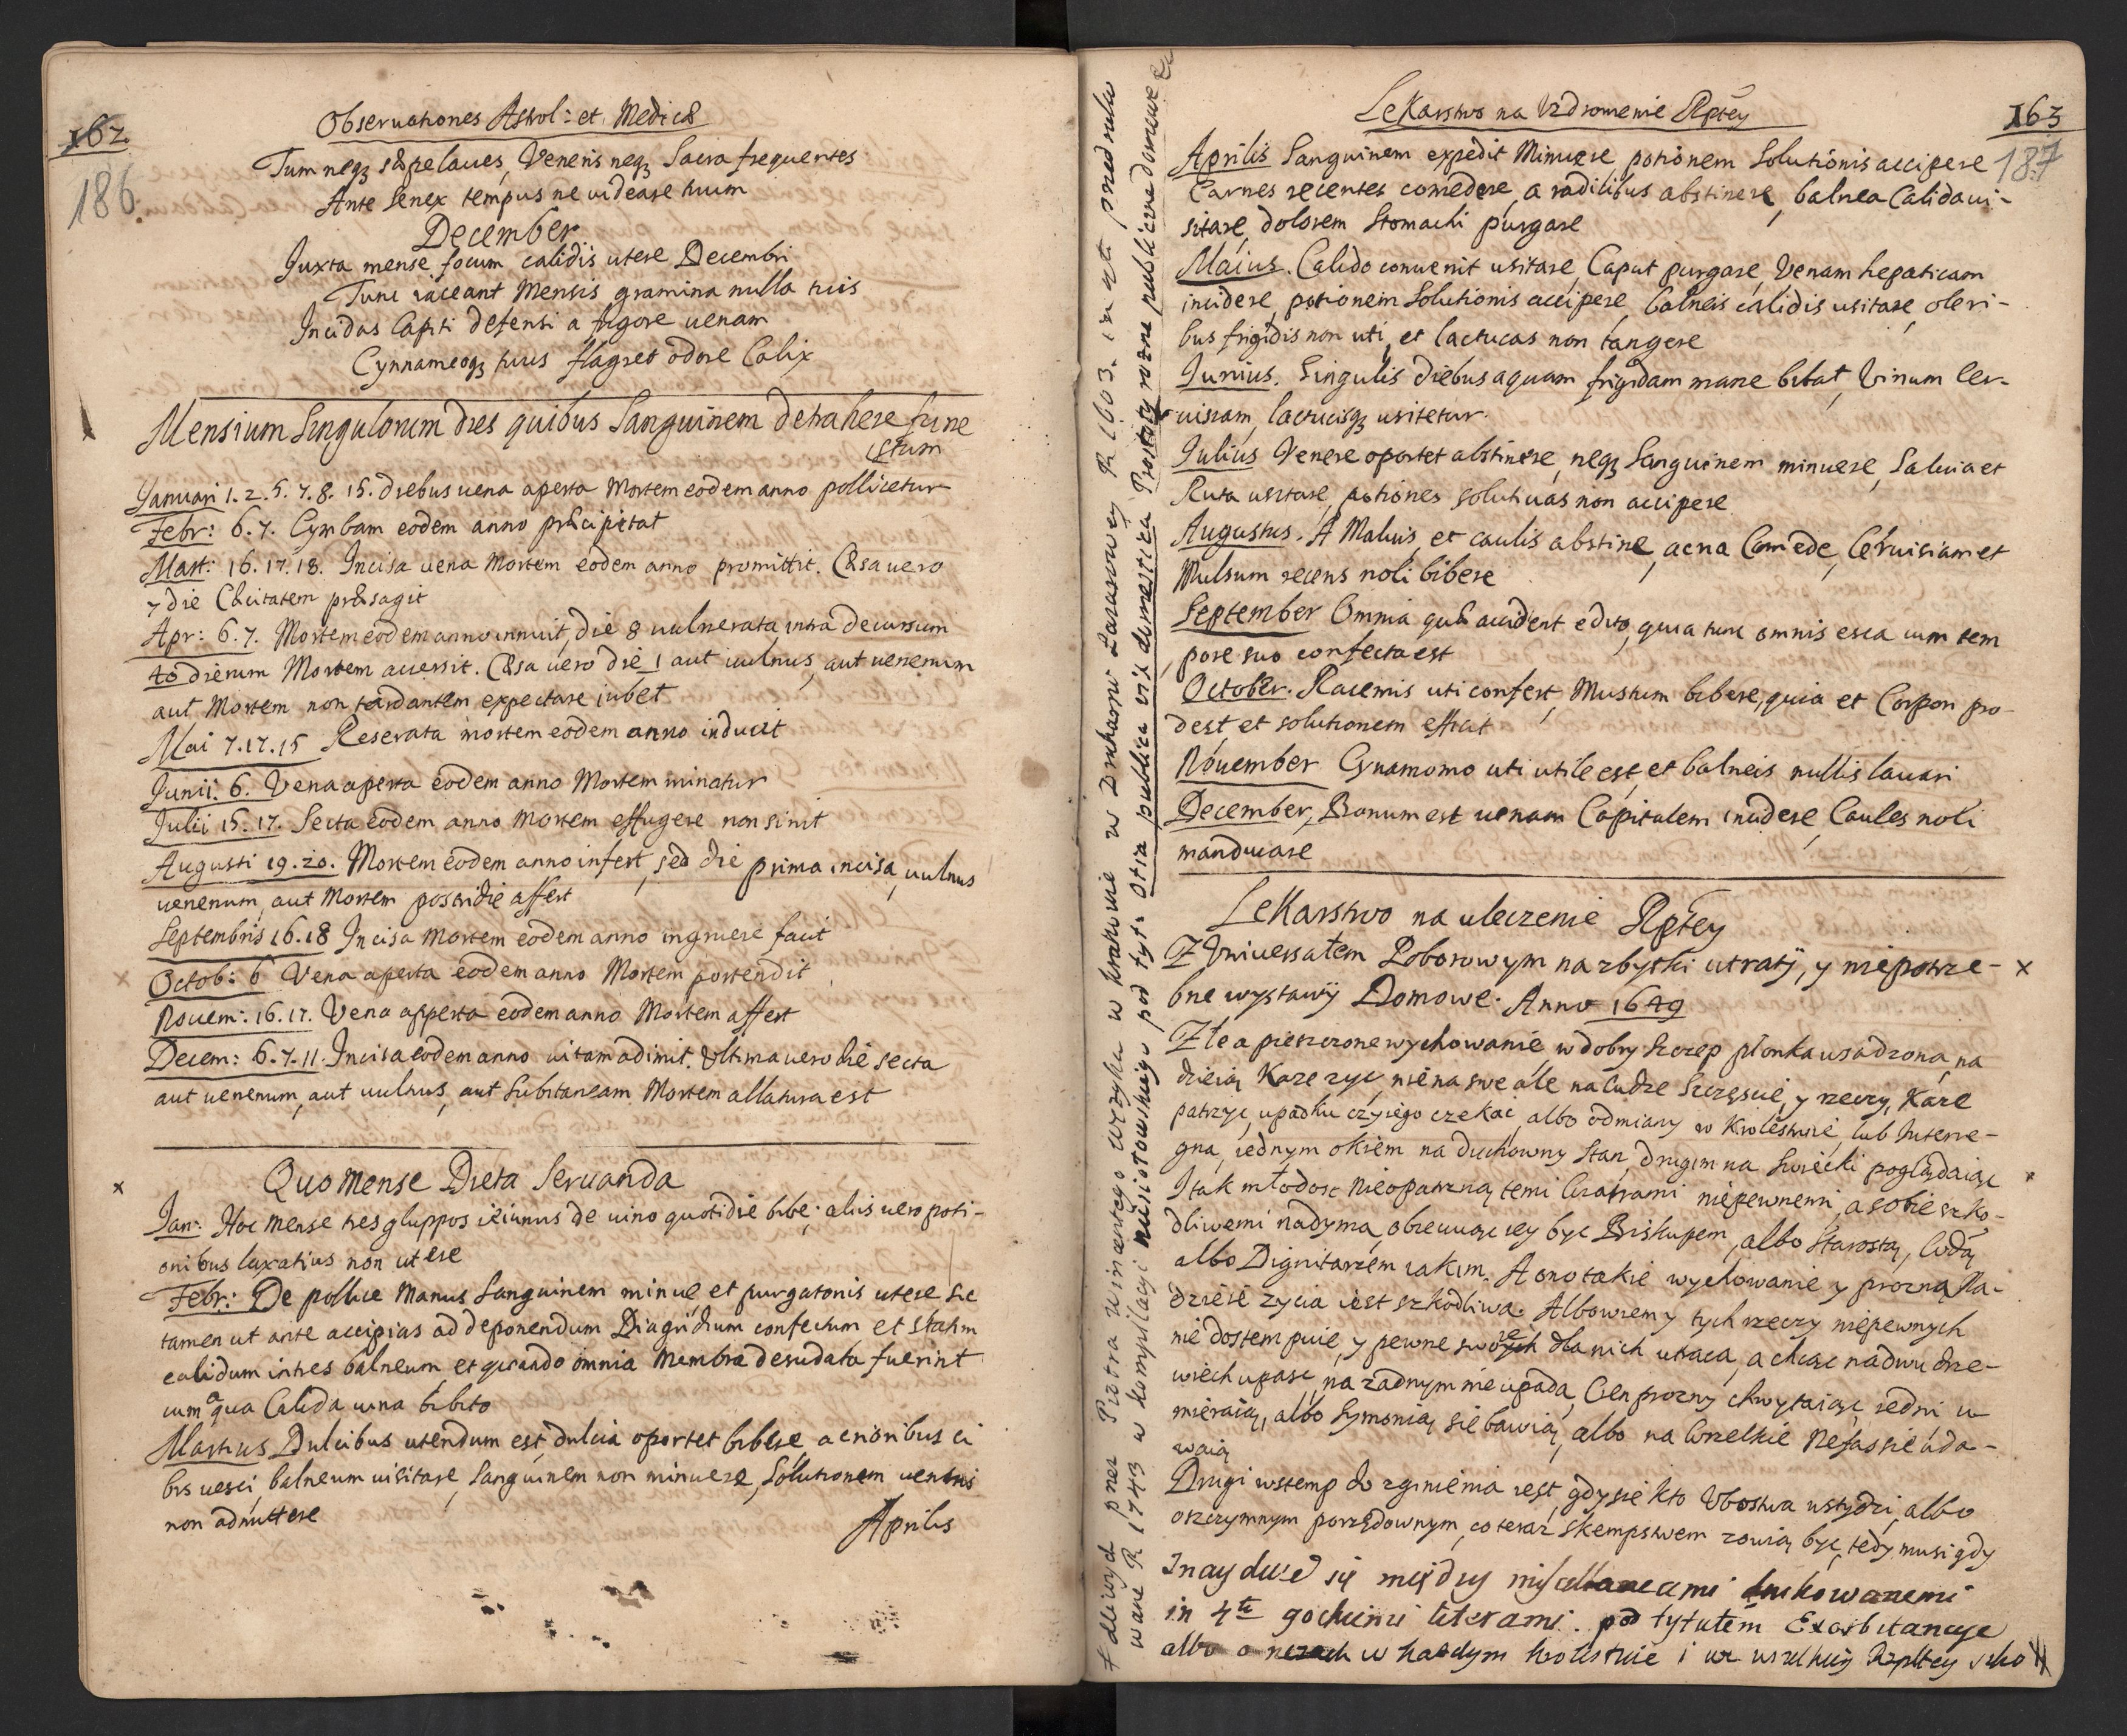 162.
186.
Observationes Astrol: et Medicæ
Tum neqꝫ sæpe laues, Veneris neqꝫ Sacra frequentes
Ante Senex tempus ne videare tuum
December
Juxta mense focum calidis utere Decembri
Tunc iaceant Mensis gramina nulla tuis
Incidas Capiti defensi a frigore uenam
Cynnameoqꝫ tuus flagret odore Calix
Mensium Singulorum dies quibus Sanguinem detrahere fune
stum
Januari 1. 2. 5. 7. 8. 15. diebus uena aperta Mortem eodem anno pollicetur
Febr: 6. 7. Cymbam eodem anno præcipitat
Mart: 16. 17. 18. Incisa uena Mortem eodem anno promittit. Cæsa uero
7 die Cæcitatem præsagit
Apr: 6. 7. Mortem eodem anno innuit, die 8 uulnerata intra decursum
40 dierum Mortem accersit. Cæsa uero die 1 aut uulnus, aut uenenum
aut Mortem non tardantem expectare iubet
Mai 7. 17. 15 Reserata mortem eodem anno inducit
Junii. 6. Vena aperta eodem anno Mortem minatur
Julii 15. 17. Secta eodem anno Mortem effugere non sinit
Augusti 19. 20. Mortem eodem anno infert, sed die prima incisa, uulnus
uenenum, aut Mortem postridie affert
Septembris 16. 18 Incisa Mortem eodem anno ingruere facit
Octob: 6 Vena aperta eodem anno Mortem portendit
Nouem: 16. 17. Vena apperta eodem anno Mortem affert
Decem: 6. 7. 11. Incisa eodem anno uitam adimit. Vltima uero die secta
aut uenenum, aut uulnus, aut Subitaneam Mortem allatura est
Quo Mense Dieta Seruanda
Jan: Hoc Mense tres gluppos ieiunus de uino quotidie bibe; aliis uero poti-
onibus laxatius non utere
Febr: De pollice Manus Sanguinem minue, et purgatoriis utere sic
tamen ut ante accipias ad deponendum Diagridium confectum, et statim
calidum intres balneum, et quando omnia Membra desudata fuerint
cum aqua Calida uina bibito
Martius Dulcibus utendum est, dulcia oportet bibere, acrioribus ci
bis uesci, balneum uisitare, Sanguinem non minuere, Solutionem uentris
non admittere
Aprilis
163
187
Lekarstwo na Vzdrowienie Rptey
Aprilis Sanguinem expedit Minuere, potionem Solutionis accipere
Carnes recentes comedere, a radilibus abstinere, balnea Calida ui-
sitare, dolorem Stomachi purgare
Maius. Calido conuenit usitare, Caput purgare, Venam hepaticam
incidere, potionem Solutionis accipere, balneis calidis usitare, oleri-
bus frigidis non uti, et lactucas non tangere
Junius. Singulis diebus aquam frigidam mane bibat, Vinum Cer-
uisiam, lactucisqꝫ usitetur.
Julius Venere oportet abstinere, neqꝫ Sanguinem minuere, Saluia et
Ruta usitare, potiones solutiuas non accipere.
Augustus. A Maluis, et caulis abstine, acria Comede, Ceruisiam et
Mulsum recens noli bibere
September Omnia quæ accident edito, quia tunc omnis esca cum tem
pore suo confecta est
October. Racemis uti confert, Mustum bibere, quia et Corpori pro-
dest et solutionem efficit
November Cynamomo uti utile est, et balneis nullis lauari
December, Bonum est uenam Capitalem incidere, Caules noli
manducare
Lekarstwo na uleczenie Rptey
Z Vniuersałem Poborowym na zbytki utraty, y niepotrze-
bne wystawy Domowe. Anno 1649
Złe a pieszczone wychowanie, w dobry szczep płonka wsadzona, na
dzieią każe zyc, nie na swe ale na ludzie Szczęscie, y rzeczy, każe
patrzyc, upadku czyiego czekac, albo odmiany w Krolestwie, lub Interre-
gna, iednym okiem na duchowny stan, drugim na Swiecki poglądaiąc
I tak młodosc nieopatrzną temi Czatami niepewnemi, a sobie szko-
dliwemi nadyma, obiecuiąc iey byc Biskupem, albo Starostą, Wdą
albo Dignitarzem iakim. A ono takie wychowanie y prozną Na-
dzieie zycia iest szkodliwa. Albowiem y tych rzeczy niepewnych
nie dostempuie, y pewne swoie dla nich utraca, a chcąc na dwu drze-
wiech upasc, na zadnym nie upada, Cien prozny chwytaiąc iedni u
mieraią, albo Symonią sie bawią, albo na wszelkie Nefas sie uda-
waią
Drugi wstemp do zginienia iest, gdy sie kto Vbostwa wstydzi, albo
oszczymnym porządownym, co teraz skempstwem zowią byc, tedy musi gdy
Znayduie się między miscellaneami drukowanemi
in 4to gockiemi literami. pod tytułem Exorbitancye
albo o rzeczach w kazdym krolestwie i we wszelkiey Rzpltey szko
wydanych przez Piotra w Krakowie w Drukarni Łazarowey R. 1603. in 4to przedruko
wane R 1743 w kompilacyi pod tyt: Otia publica vix domestica Rostory rozne publiczne domowe &c